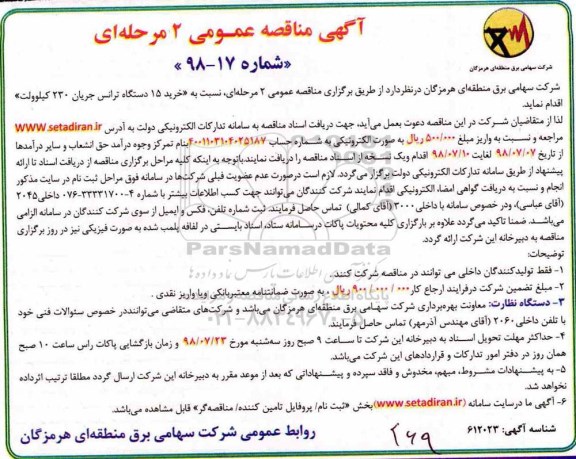 آگهی مناقصه عمومی ۲ مرحله‌ای
«شماره ۱۷-۹۸»
شرکت سهامی برق منطقه‌ای هرمزگان
شرکت سهامی برق منطقه‌ای هرمزگان درنظردارد از طریق برگزاری مناقصه عمومی ۲ مرحله‌ای، نسبت به «خرید ۱۵ دستگاه ترانس جریان ۲۳۰ کیلوولت»
اقدام نماید.
لذا از متقاضیان شرکت در این مناقصه دعوت بعمل می‌آید، جهت دریافت اسناد مناقصه به سامانه تدارکات الکترونیکی دولت به آدرس www.setadiran.ir
مراجعه و نسبت به واریز مبلغ ۵۰۰/۰۰۰ ریال به صورت الکترونیکی به شماره حساب ۴۰۰۱۱۰۳۱۰۴۰۲۵۱۸۷ بنام تمرکز وجوه درآمد حق انشعاب و سایر درآمدها
از تاریخ ۹۸/۰۷/۰۷ لغایت ۹۸/۰۷/۱۰ اقدام ویک نسخه از اسناد مناقصه را دریافت نمایند.باتوجه به اینکه کلیه مراحل برگزاری مناقصه از دریافت اسناد تا ارائه
پیشنهاد از طریق سامانه تدارکات الکترونیکی دولت برگزار می‌گردد. لازم است درصورت عدم عضویت قبلی شرکت‌ها در سامانه فوق مراحل ثبت نام در سایت مذکور
انجام و نسبت به دریافت گواهی امضاء الکترونیکی اقدام نمایند شرکت کنندگان می‌توانند جهت کسب اطلاعات بیشتر با شماره ۴-۳۳۳۳۱۷۰۰-۰۷۶ داخلی ۲۰۴۵
(آقای عباسی)، ودر خصوص سامانه با داخلی ۳۰۰۰ (آقای کمالی) تماس حاصل فرمایند. ثبت شماره تلفن، فکس و ایمیل از سوی شرکت کنندگان در سامانه الزامی
می‌باشد. ضمنا تاکید می‌گردد علاوه بر بارگزاری کلیه محتویات پاکات درسامانه ستاد، اسناد بایستی در لفافه پلمب شده به صورت فیزیکی نیز در روز برگزاری
مناقصه به دبیرخانه این شرکت ارائه گردد.
توضیحات:
۱- فقط تولیدکنندگان داخلی می توانند در مناقصه شرکت کنند.
۲- مبلغ تضمین شرکت درفرایند ارجاع کار ۹۰۰/۰۰۰/۰۰۰ ریال، به صورت ضمانتنامه معتبربانکی ویا واریز نقدی.
۳- دستگاه نظارت: معاونت بهره‌برداری شرکت سهامی برق منطقه‌ای هرمزگان می‌باشد و شرکت‌های متقاضی می‌تواننددر خصوص سئولات فنی خود
با تلفن داخلی ۲۰۶۰ (آقای مهندس آذرمهر) تماس حاصل فرمایند.
۴- حداکثر مهلت تحویل اسناد به دبیرخانه این شرکت تا ساعت ۹ صبح روز سه‌شنبه مورخ ۹۸/۰۷/۲۳ و زمان بازگشایی پاکات راس ساعت ۱۰ صبح
همان روز در دفتر امور تدارکات و قراردادهای این شرکت می‌باشد.
۵- به پیشنهادات مشروط، مبهم، مخدوش و فاقد سپرده و پیشنهاداتی که بعد از موعد مقرر به دبیرخانه این شرکت ارسال گردد مطلقا ترتیب اثرداده
نخواهد شد.
۶- آگهی ما درسایت سامانه (www.setadiran.ir) بخش «ثبت نام/ پروفایل تامین کننده/ مناقصه‌گر» قابل مشاهده می‌باشد.
شناسه آگهی: ۶۱۲۰۲۳
۲۶۹
روابط عمومی شرکت سهامی برق منطقه‌ای هرمزگان
ParsNamadData
۰۲۱-۸۸۳۴۹۶۷۰-۵